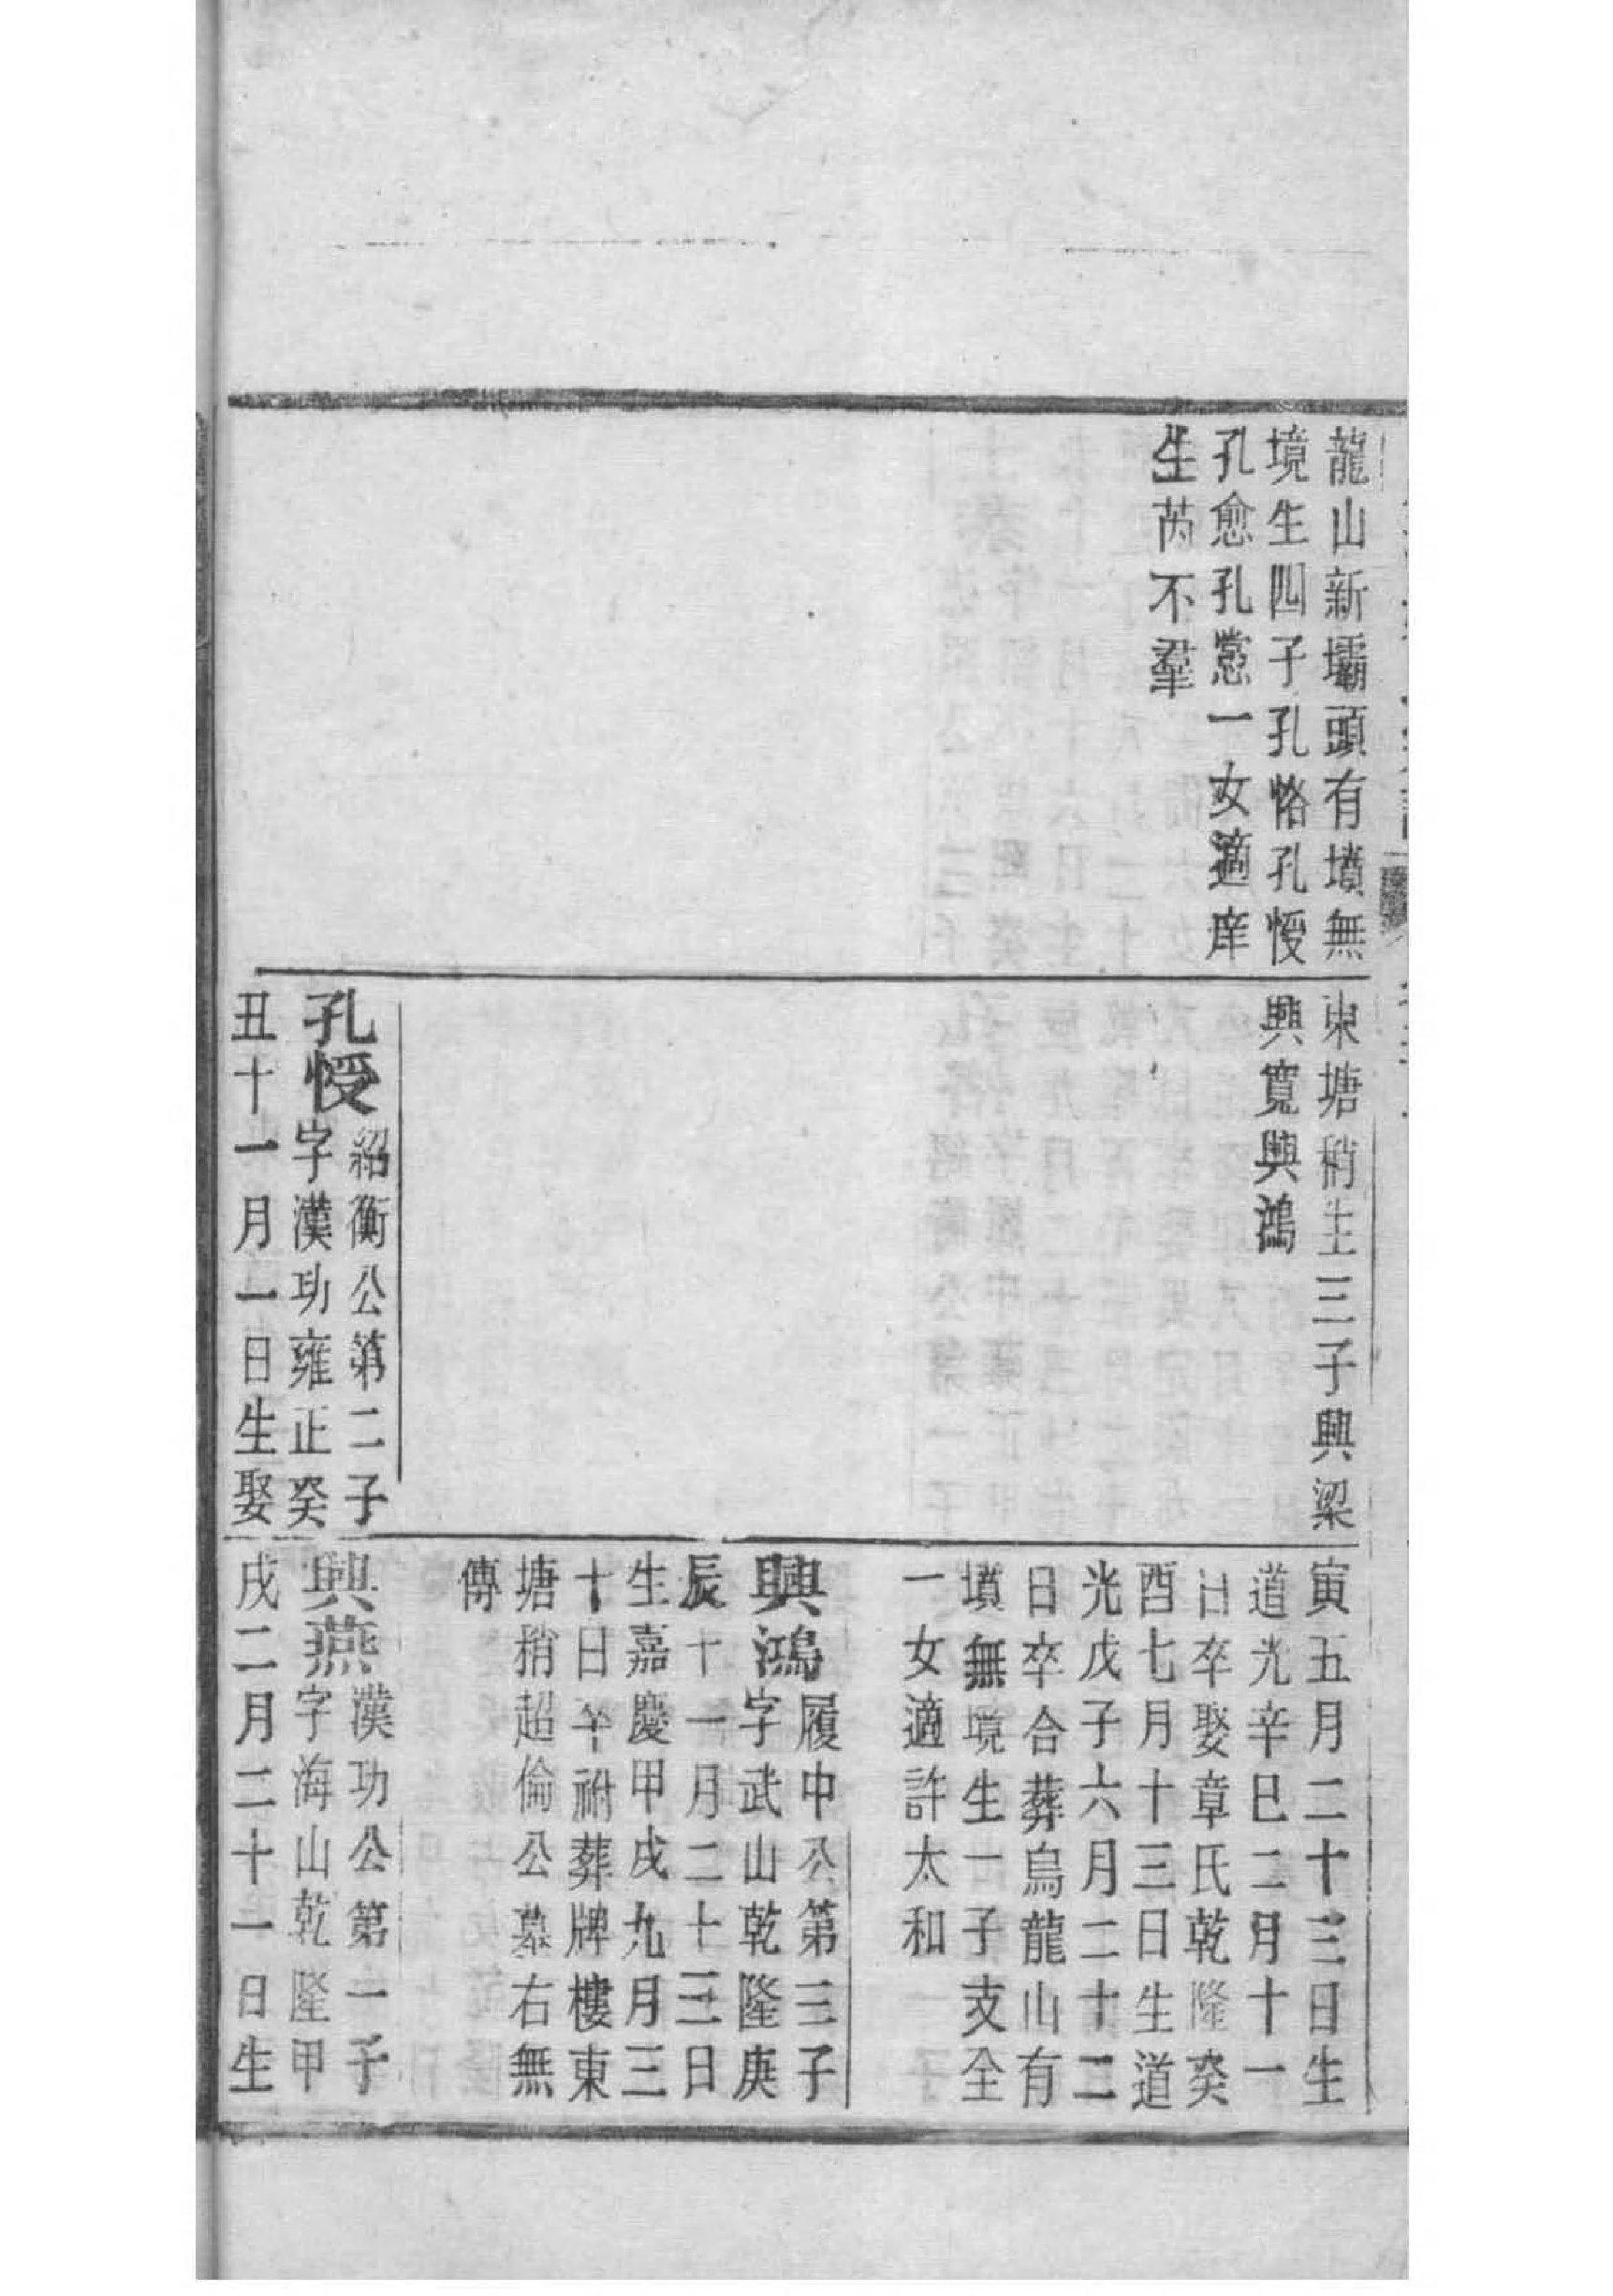 龍山新壩頭有墳無
境生四子孔恪孔㥅
孔愈孔㦂一女適庠
生芮不羣
東塘稍生三子興梁
興寬興鴻
孔㥅
紹衡公第二子
字漢功雍正癸
丑十一月一日生娶
寅五月二十三日生
道光辛巳二月十一
日卒娶章氏乾隆癸
酉七月十三日生道
光戊子六月二十二
日卒合葬烏龍山有
墳無境生一子支全
一女適許太和
興鴻
履中公第三子
字武山乾隆庚
辰十一月二十三日
生嘉慶甲戌九月三
十日卒祔葬牌樓東
塘稍超倫公墓右無
傳
興燕
漢功公第一子
字海山乾隆甲
戌二月二十一日生